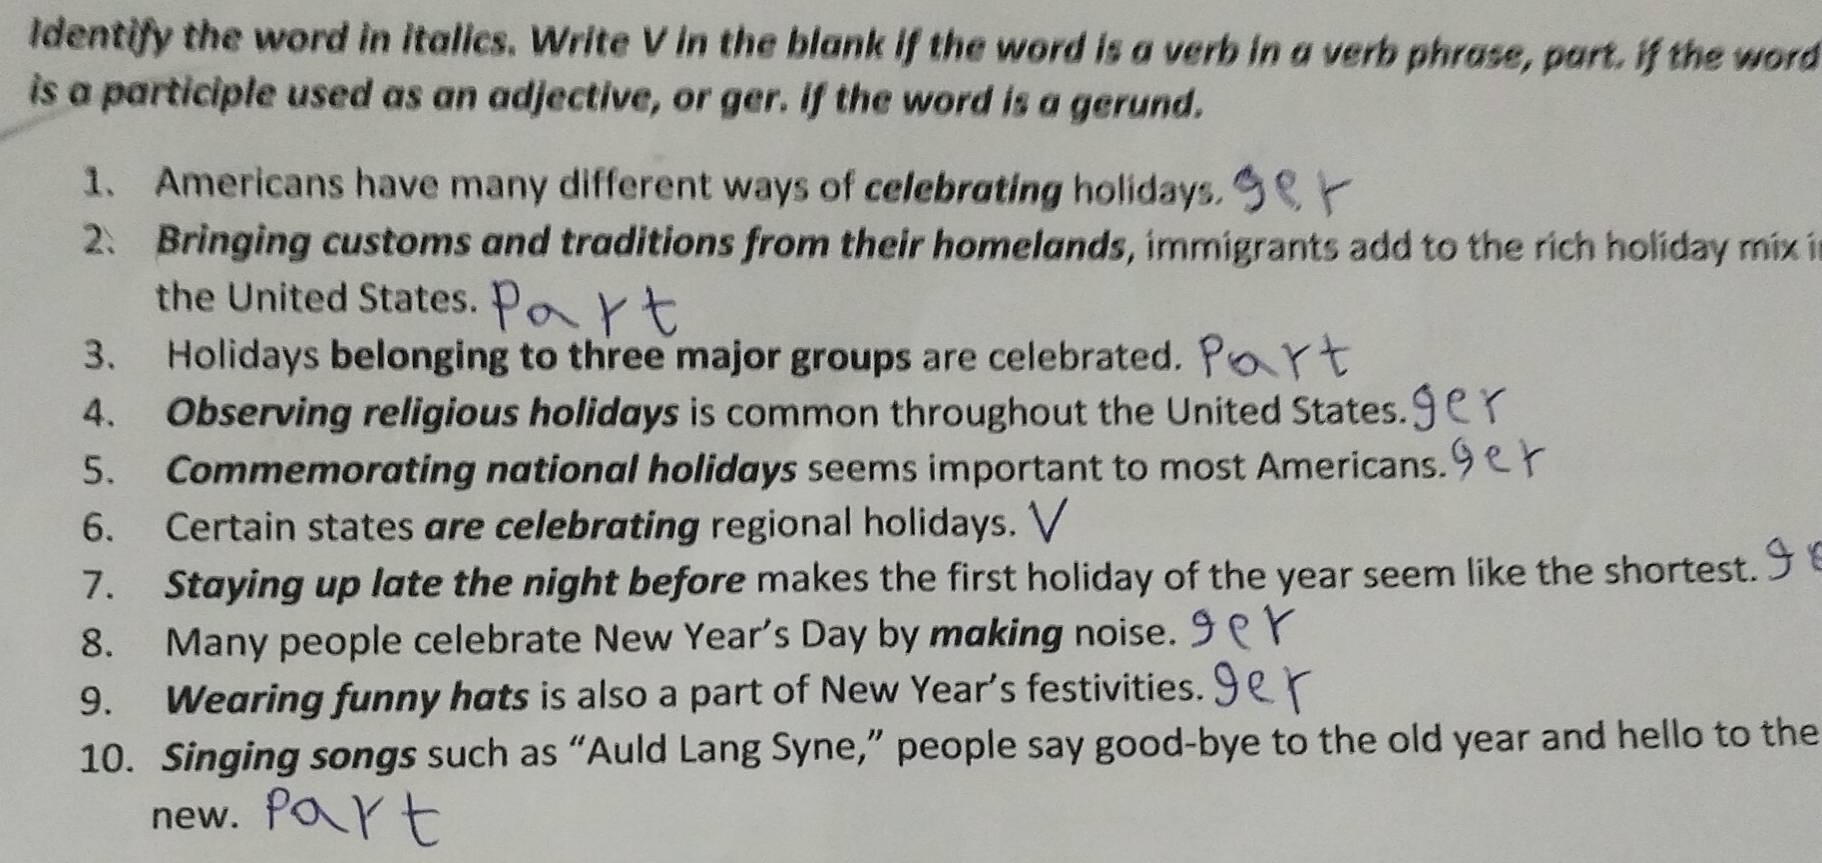 Identify the word in italics. Write V in the blank if the word is a verb in a verb phrase, part. if the word
is a participle used as an adjective, or ger. if the word is a gerund.
1. Americans have many different ways of celebrating holidays. ger
2. Bringing customs and traditions from their homelands, immigrants add to the rich holiday mix
the United States. Part
3. Holidays belonging to three major groups are celebrated. Part
4. Observing religious holidays is common throughout the United States. ger
5. Commemorating national holidays seems important to most Americans. ger
6. Certain states are celebrating regional holidays. V
7. Staying up late the night before makes the first holiday of the year seem like the shortest.
8. Many people celebrate New Year's Day by making noise. ger
9. Wearing funny hats is also a part of New Year's festivities. ger
10. Singing songs such as “Auld Lang Syne,” people say good-bye to the old year and hello to the
new. Part